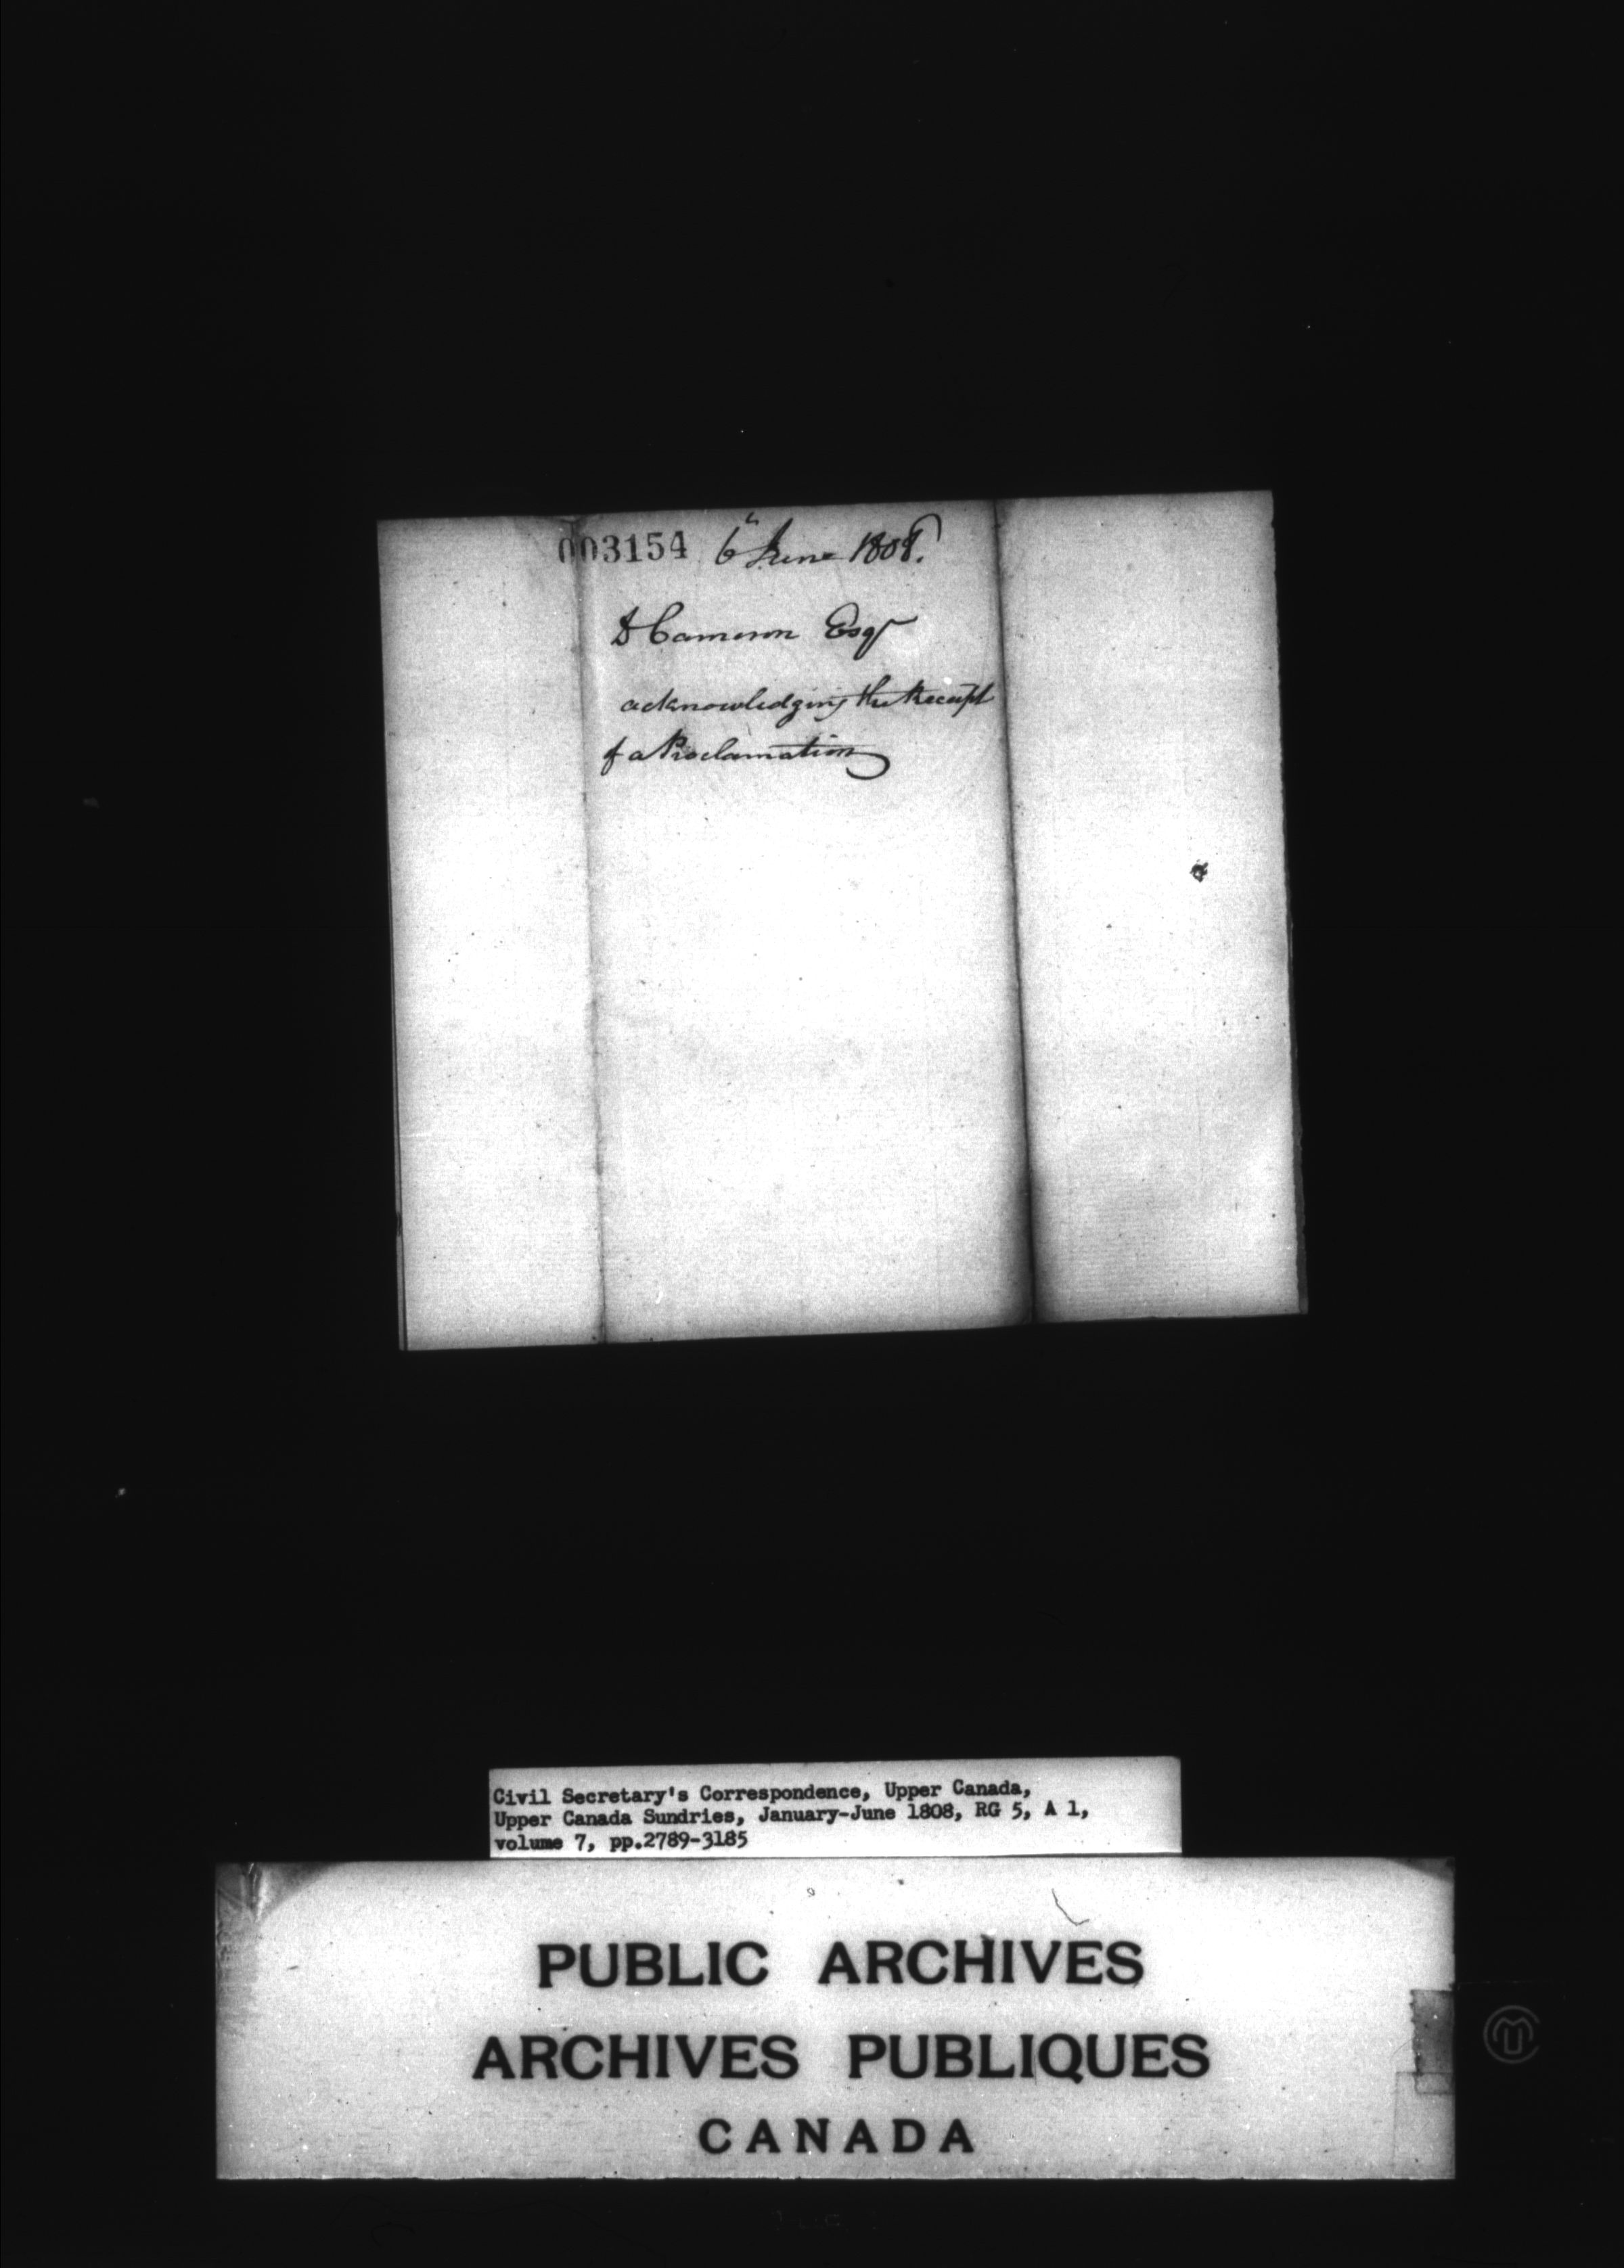 003154 6" June 1808.
D Cameron Esqr
acknowledging the Receipt
of a Proclamation
Civil Secretary's Correspondence, Upper Canada,
Upper Canada Sundries, January-June 1808, RG 5, A 1,
volume 7, pp.2789-3185
PUBLIC ARCHIVES
ARCHIVES PUBLIQUES
CANADA